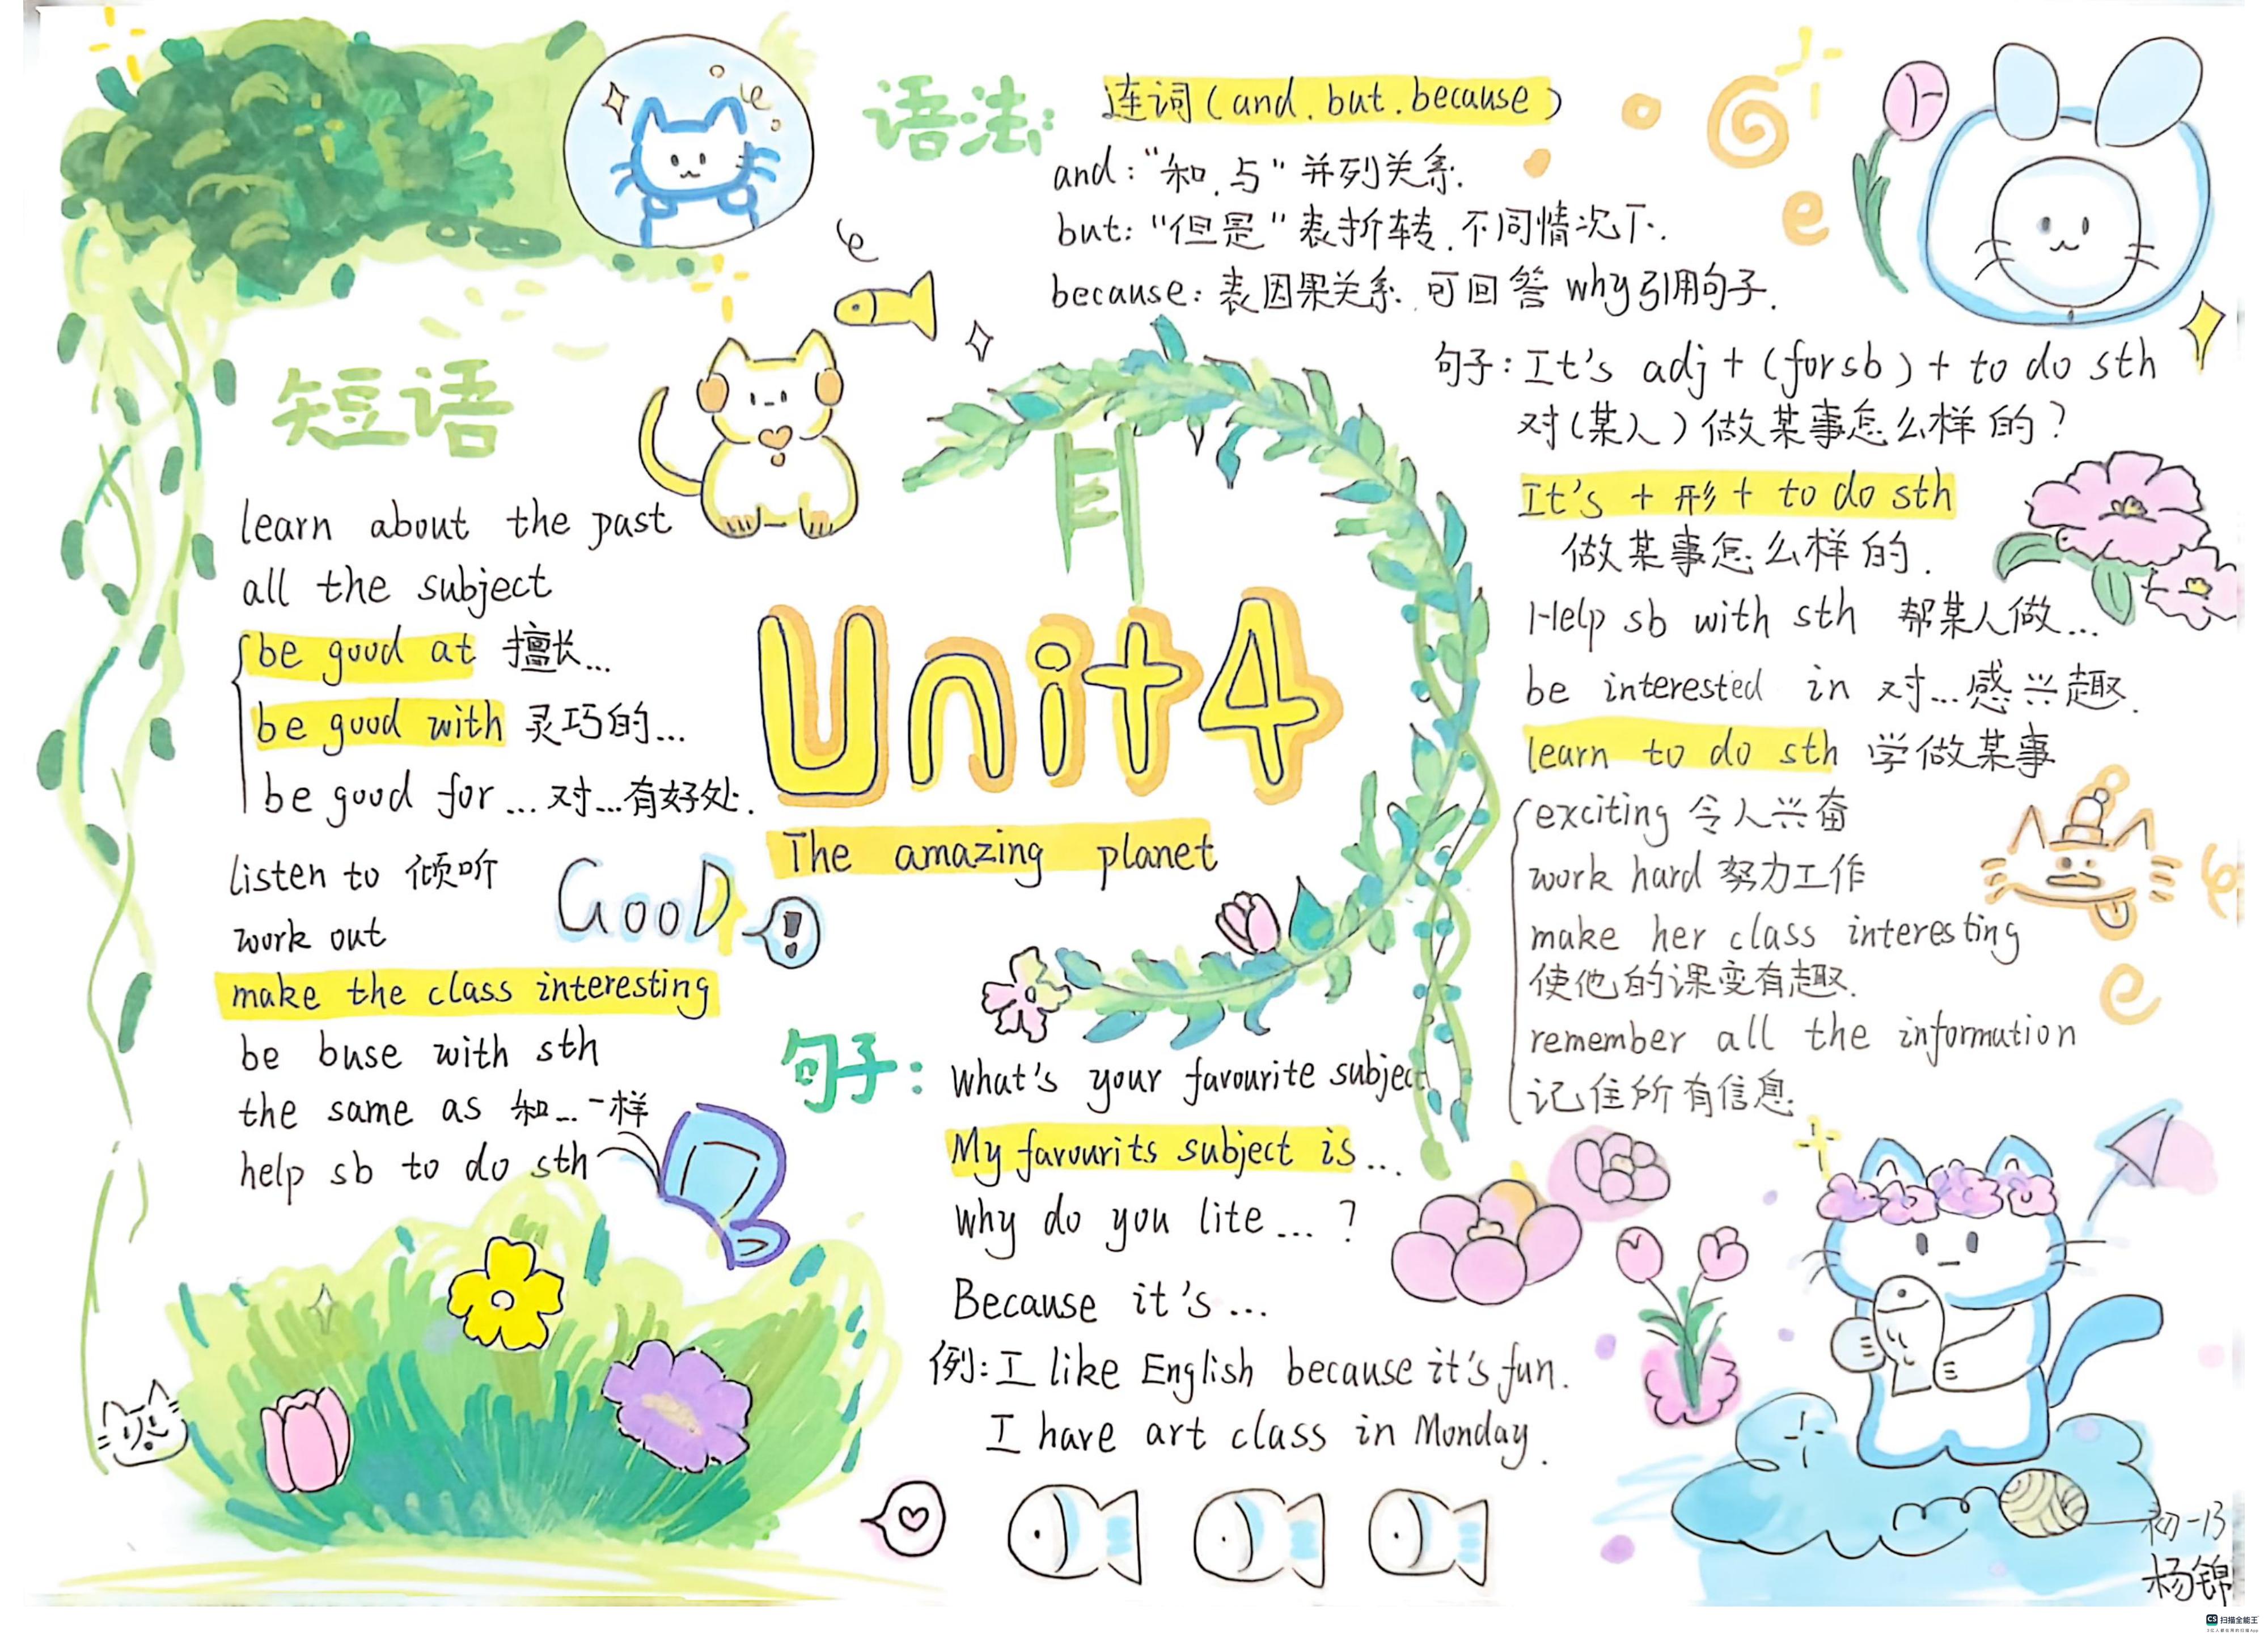 语法:
连词(and.but.because)
and:"和.与"并列关系.
but:"但是"表折转.不同情况下.
because:表因果关系.可回答why引用句子.
短语
learn about the past
all the subject
be good at 擅长...
be good with 灵巧的...
be good for...对...有好处.
listen to 倾听
work out
make the class interesting
be buse with sth
the same as 和...一样
help sb to do sth
GooD
!
Unit4
The amazing planet
句子:It's adj+(for sb)+to do sth
对(某人)做某事怎么样的?
It's+形+to do sth
做某事怎么样的.
Help sb with sth 帮某人做...
be interested in 对...感兴趣.
learn to do sth 学做某事
exciting 令人兴奋
work hard 努力工作
make her class interesting
使他的课变有趣.
remember all the information
记住所有信息
句子:what's your favourite subject
My favourits subject is...
why do you lite...?
Because it's...
例:I like English because it's fun.
I have art class in Monday.
初一13
杨锦
CS 扫描全能王